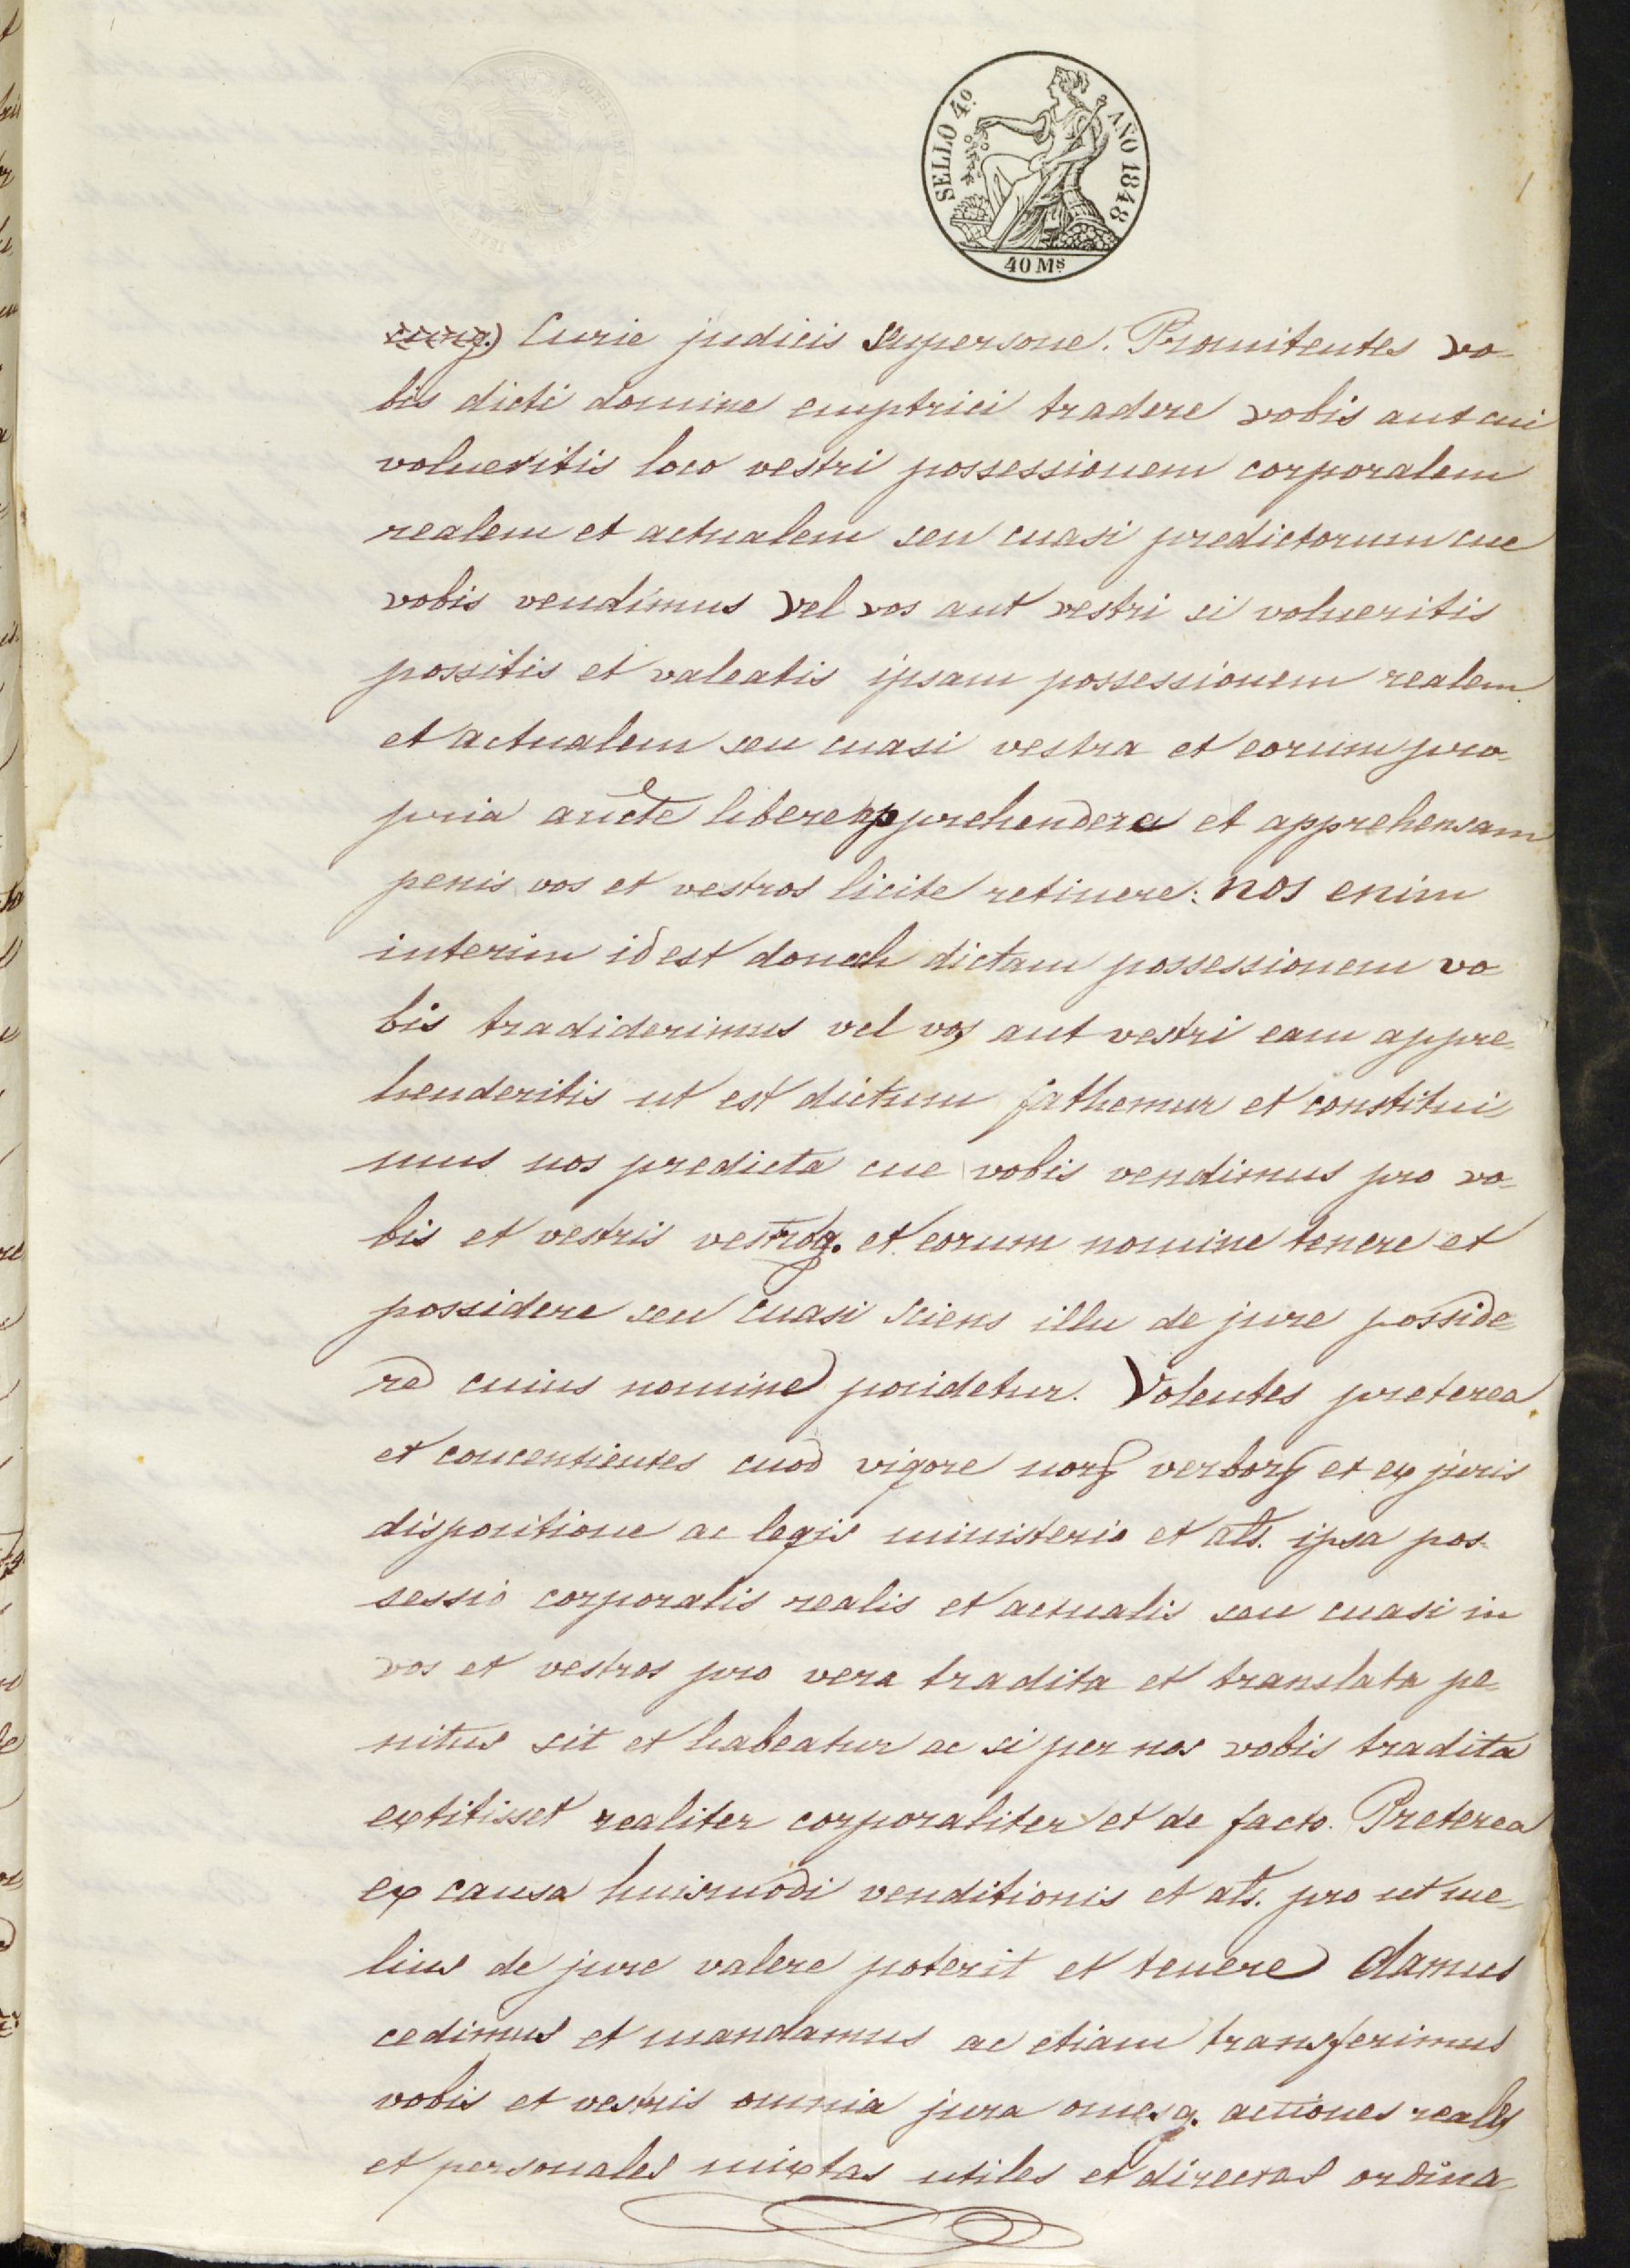 SELLO 4º AÑO 1848
40 Ms
Curie judicis supersone. Promitentes vo-
bis dicti domine emptrici tradere vobis aut cui
volueritis loco vestri possessionem corporalem
realem et actualem seu cuasi predictorum cue
vobis vendimus vel vos aut vestri si volueritis
possitis et valeatis ipsam possessionem realem
et actualem seu cuasi vestra et eorum pro-
pria aucte libere apprehendere et apprehensam
penis vos et vestros licite retinere: nos enim
interim id est donech dictam possessionem vo-
bis tradiderimus vel vos aut vestri eam appre-
henderitis ut est dictum fathemur et constitui
mus nos predicta cue vobis vendimus pro vo-
bis et vestris vestroq. et eorum nomine tenere et
possidere seu cuasi sciens illu de jure posside-
re cuius nomine posidetur. Volentes preterea
et concentientes cuod vigore et ex juris
dispocitione ac legis ministerio et als. ipsa pos-
sessio corporalis realis et actualis seu cuasi in
vos et vestros pro vera tradita et translata pe-
nitus sit et habeatur ac si per nos vobis tradita
extitisset realiter corporaliter et de facto. Preterea
ex causa huismodi venditionis et als. pro ut me-
lius de jure valere poterit et tenere damus
cedimus et mandamus ac etiam transferimus
vobis et vestris omnia jura omesq. actiones reales
et personales mixtas utiles et directas ordina-